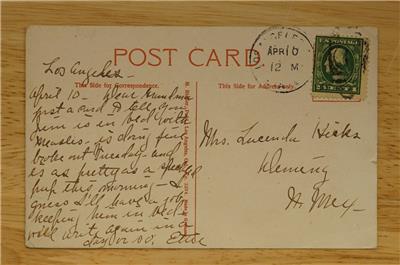 POST CARD
This Side for Correspondence.
This Side for Address only.
LOS ANGELES
APR 10
12 M
Los Angeles -
April 10 - Dear Grandma
Just a card to tell you
Jem is in bed with
Measles, is doing fine
broke out Tuesday and
is as pretty as a speckled
pup this morning - I
guess I'll have a job
keeping him in bed -
will write again in a
day or so. Elsie
Mrs. Lucinda Hicks
Deming
N. Mex -